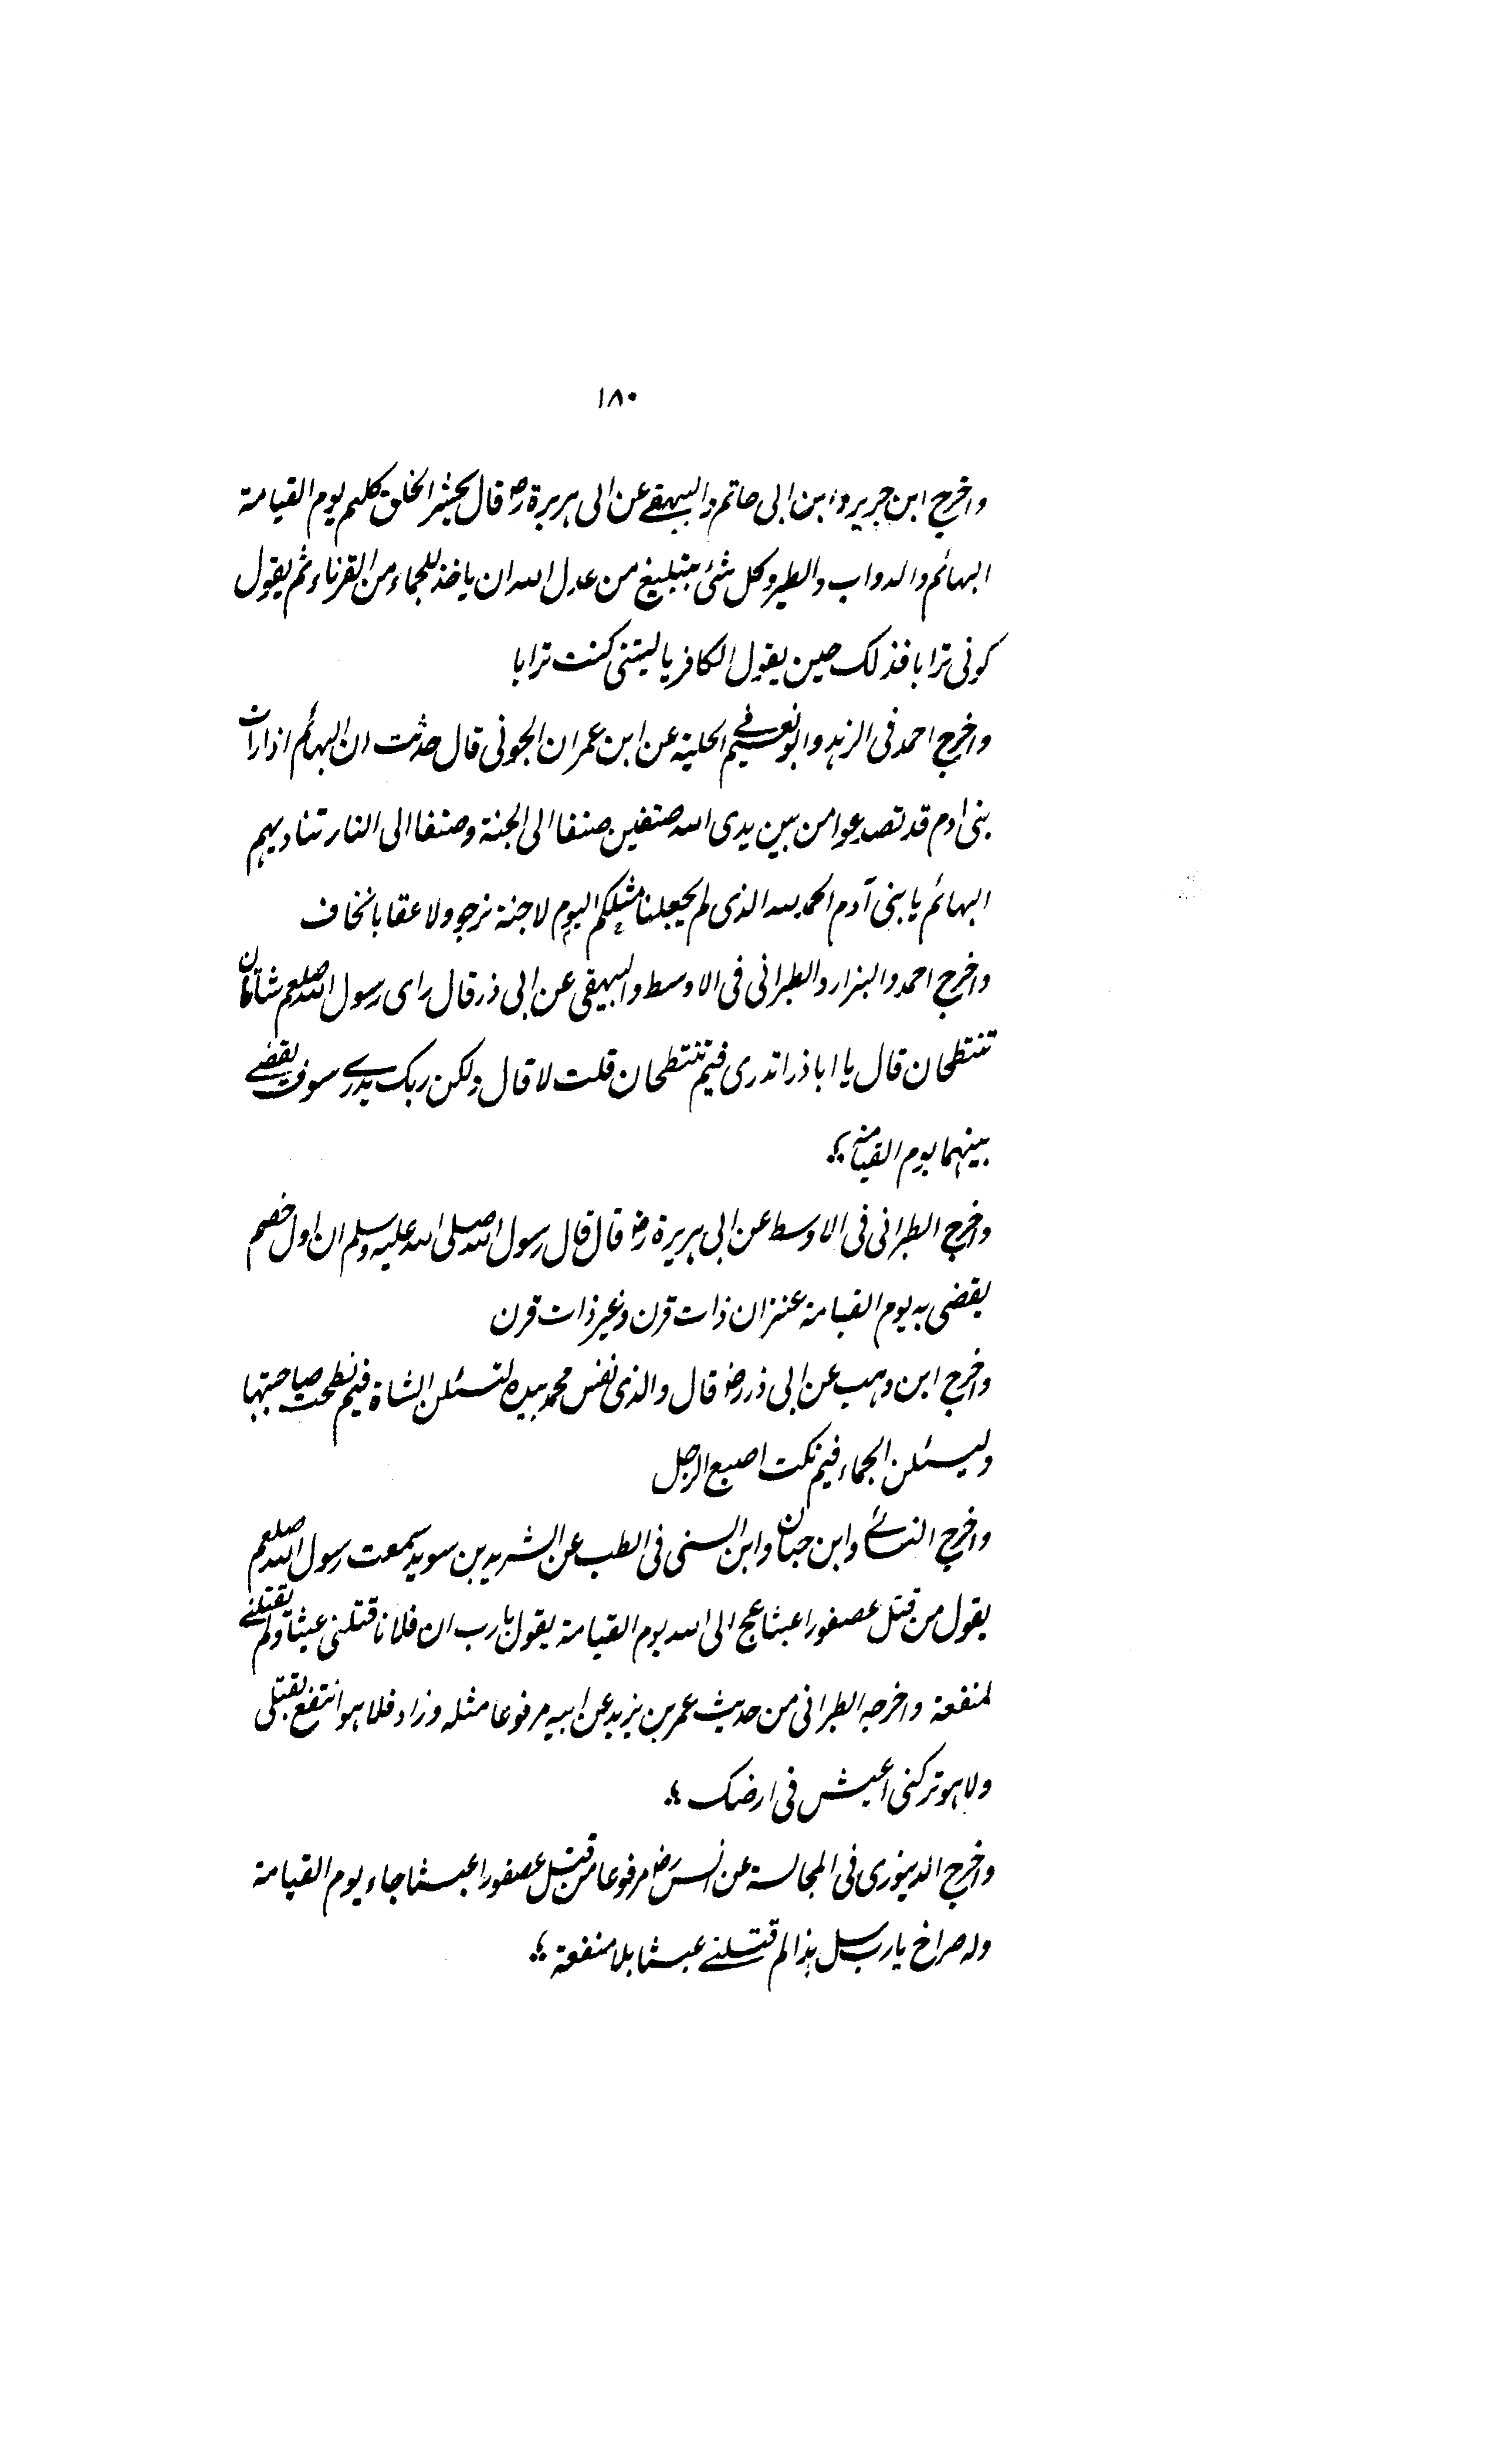 ١٨٠
واخرج ابن جرير وابن ابى حاتم والبيهقے عن ابى هريرة رض قال يحشر الخلق كلهم يوم القيامة
البهائم والدواب والطير وكل شئ فيبلغ من عدل الله ان ياخذ للجماء من القرناء ثم يقول
كونى ترابا فذلك حين يقول الكافر ياليتنى كنت ترابا
واخرج احمد فى الزهد وابو نعيم فے الحلية عن ابن عمران الجونى قال حدثت ان البهائم اذا رات
بنى ادم قد تصدعوا من بين يدى الله صنفين صنفا الى الجنة وصنفا الى النار تناديهم
البهائم يا بنى آدم الحمد لله الذى لم يجعلنا مثلكم اليوم لا جنة نرجو ولا عقابا نخاف
واخرج احمد والبزار والطبرانى فى الاوسط والبيهقى عن ابى ذر قال راى رسول الله صلعم شاتان
تنتطحان قال يا اباذر اتدرى فيم تنتطحان قلت لا قال ولكن ربك يدرے سوف يقضے
بينهما يوم القيامة
واخرج الطبرانى فى الاوسط عن ابى هريرة رض قال قال رسول الله صلى الله عليه وسلم ان اول خصم
يقضى به يوم القيامة عنزان ذات قرن وغير ذات قرن
واخرج ابن وهب عن ابى ذر رض قال والذى نفس محمد بيده لتسئلن الشاة فيم نطحت صاحبتها
وليسئلن الجماء فيم نكت اصبع الرجل
واخرج النسائے وابن حبان وابن السنى فى الطب عن الشريد بن سويد سمعت رسول الله صلعم
يقول من قتل عصفورا عبثا عج الى الله يوم القيامة يقول يا رب ان فلانا قتلنى عبثا ولم يقتلنے
لمنفعة واخرجه الطبرانى من حديث عمر بن يزيد عن ابيه مرفوعا مثله وزاد فلا هو انتفع بقتلى
ولا هو تركنى اعيش فى ارضك
واخرج الدينورى فى المجالسة عن انس رض مرفوعا من قتل عصفورا عبثا جاء يوم القيامة
وله صراخ يا رب سل هذا لم قتلنے عبثا بلا منفعة